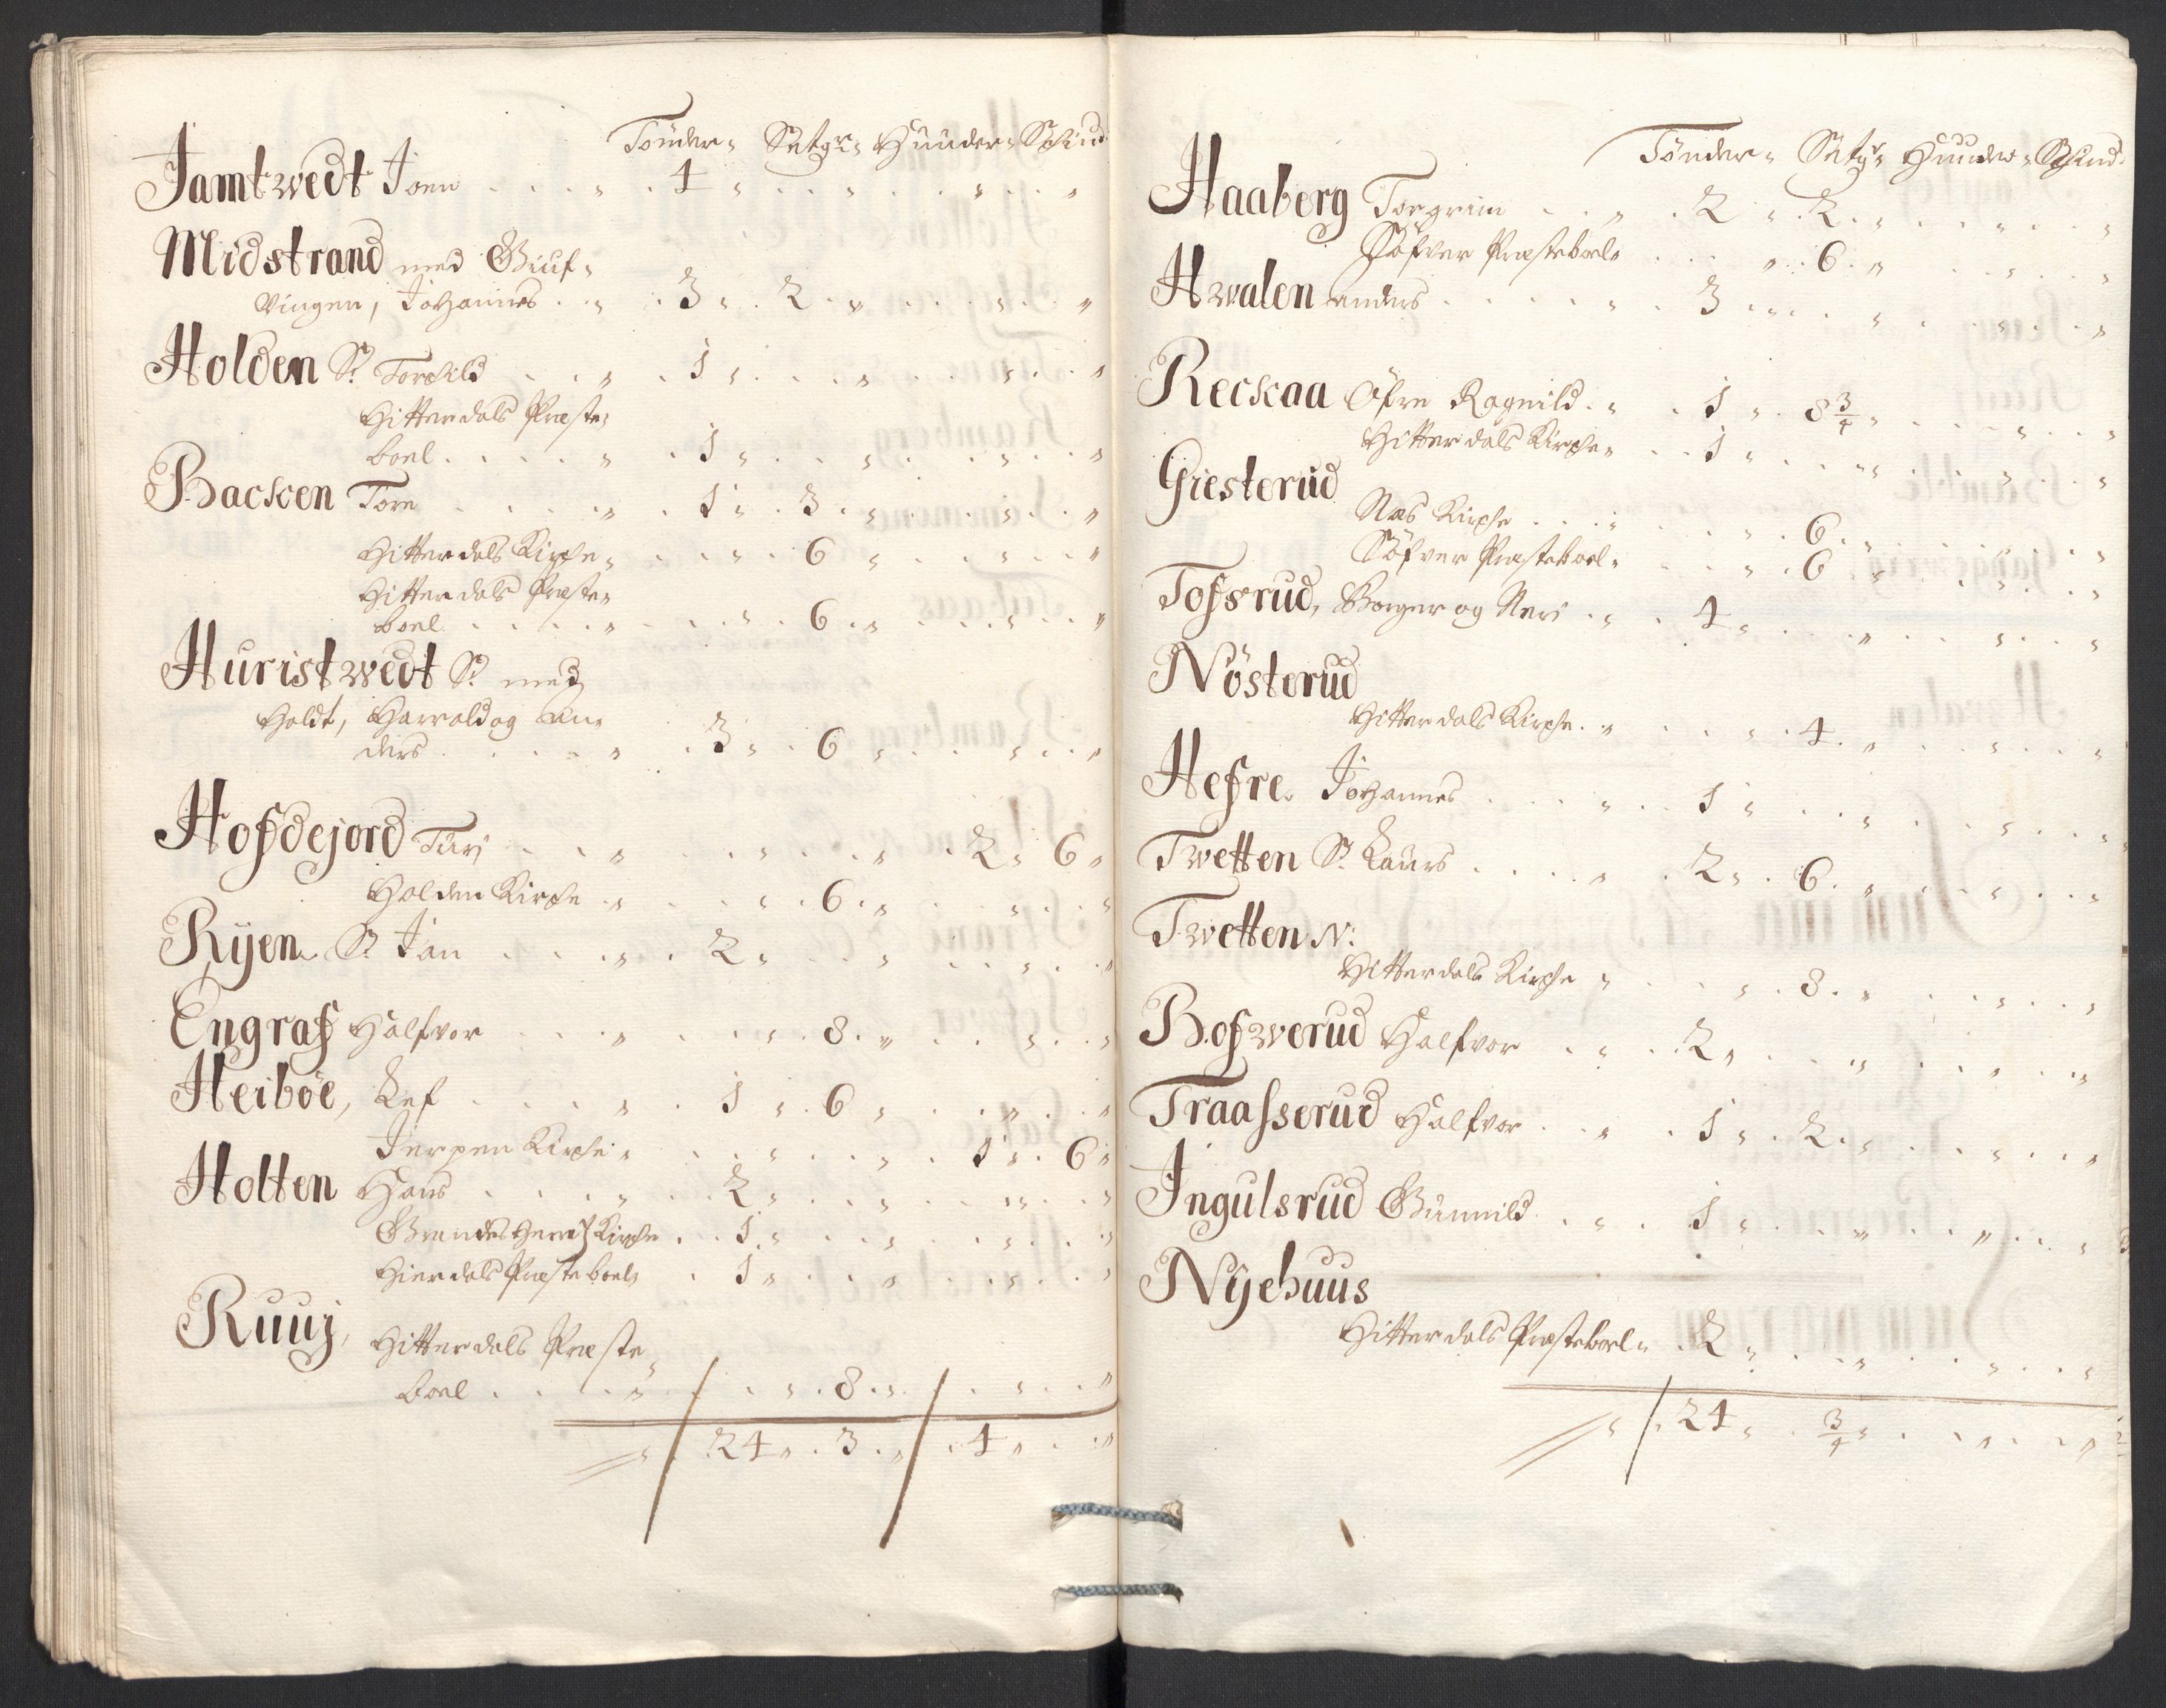 Tönder„ Setgr„ Hünder„ Schind
Jamtwedt Joen . . . „ . 4 „ . . . „ . . . . „ . . . „
Midstrand med Giuf„
Vingen, Johannes . . „ . 3 „ . 2 . „ . . . . „ . . . „
Holden S: Torchild . . . „ . 1 „ . . . . „ . . . . „ . . . „
Hitterdals Præste„
boel . . . . . „ . 1 „ . . . „ . . . . „ . . . „
Backen Tore . . . . „ . 1 „ . 3 . „ . . . . „ . . . „
Hitterdals Kirche„ . . . . „ . 6 „ . . . . „ . . . „
Hitterdals Præste„
boel . . . . . „ . . . . „ . 6 . „ . . . . „ . . . „
Huristwedt S: med
Holdt, Harrald og An„
ders . . . . . „ . 3 „ . 6 „ . . . . „ . . . „
Hofdejord Tarj . . . „ . . . . „ . . . „ . 2 „ 6 „
Holden Kirche . „ . . . . „ . 6 . „ . . . . „ . . . „
Rÿen S: Jan . . . . „ . 2 „ . . . „ . . . . „ . . . „
Engraf Halfvor . . . . „ . . . . „ . 8 . „ . . . . „ . . . „
Heiböe, Lef . . . . „ . 1 „ . 6 „ . . . . „ . . . „
Jerpen Kirche „ . . . . „ . . . . „ . 1 „ . 6 „
Holten Hans . . . . „ . 2 „ . . . . „ . . . . „ . . . „
Grandsherretz Kirche . . 1 „ . . . . „ . . . . „ . . . „
Hierdals Præsteboel „ . 1 „ . . . . „ . . . . „ . . . „
Ruuj, Hitterdals Præste„
boel . . . . . „ . . . . „ . 8 . „ . . . . „ . . . „
„ . 24 „ . 3 . „ . 4 „ . . . „
Tönder„ Setgr„ Hunder„ Schind„
Haaberg Torgrim . . . „ . 2 „ . 2 . „ . . . . „ . . . „
Söfver Præsteboel„ . . . . „ . 6 . „ . . . . „ . . . „
Hwalen Anders . . . . . „ . 3 . „ . . . . „ . . . . „ . . . „
Reckaa Öfre Ragnild . „ . 1 „ . 8 3/4 „ . . . . „ . . . „
Hitterdals Kirche„ . . 1 „ . . . . „ . . . . „ . . . „
Giesterud
Næs Kirche . . . „ . . . . „ . 6 . „ . . . . „ . . . „
Söfver Præsteboel „ . . . . „ . 6 „ . . . . „ . . . „
Tofsrud, Borger og Neri . „ . 4 „ . . . . „ . . . . „ . . . „
Nösterud
Hitterdals Kirche . „ . . . . „ . 4 . „ . . . . „ . . . „
Hefre. Johannes . . . . „ . . 1 „ . . . . „ . . . . „ . . . „
Twetten S: Laurs . . . . „ . 2 „ . 6 . „ . . . . „ . . . „
Twetten N:
Hitterdals Kirche „ . . . . „ . 8 . „ . . . . „ . . . „
Bofwerud Halfvor . . „ . 2 „ . . . . „ . . . . „ . . . „
Traasserud Halfvor . . „ . 1 „ . 2 . „ . . . . „ . . . „
Ingulsrud Gunnild . . „ . 1 „ . . . . „ . . . . „ . . . „
Nÿehuus
Hitterdals Præsteboel „ . 2 „ . . . . „ . . . . „ . . . „
„ . 24 „ . 3/4 „ . . . . „ . . . „